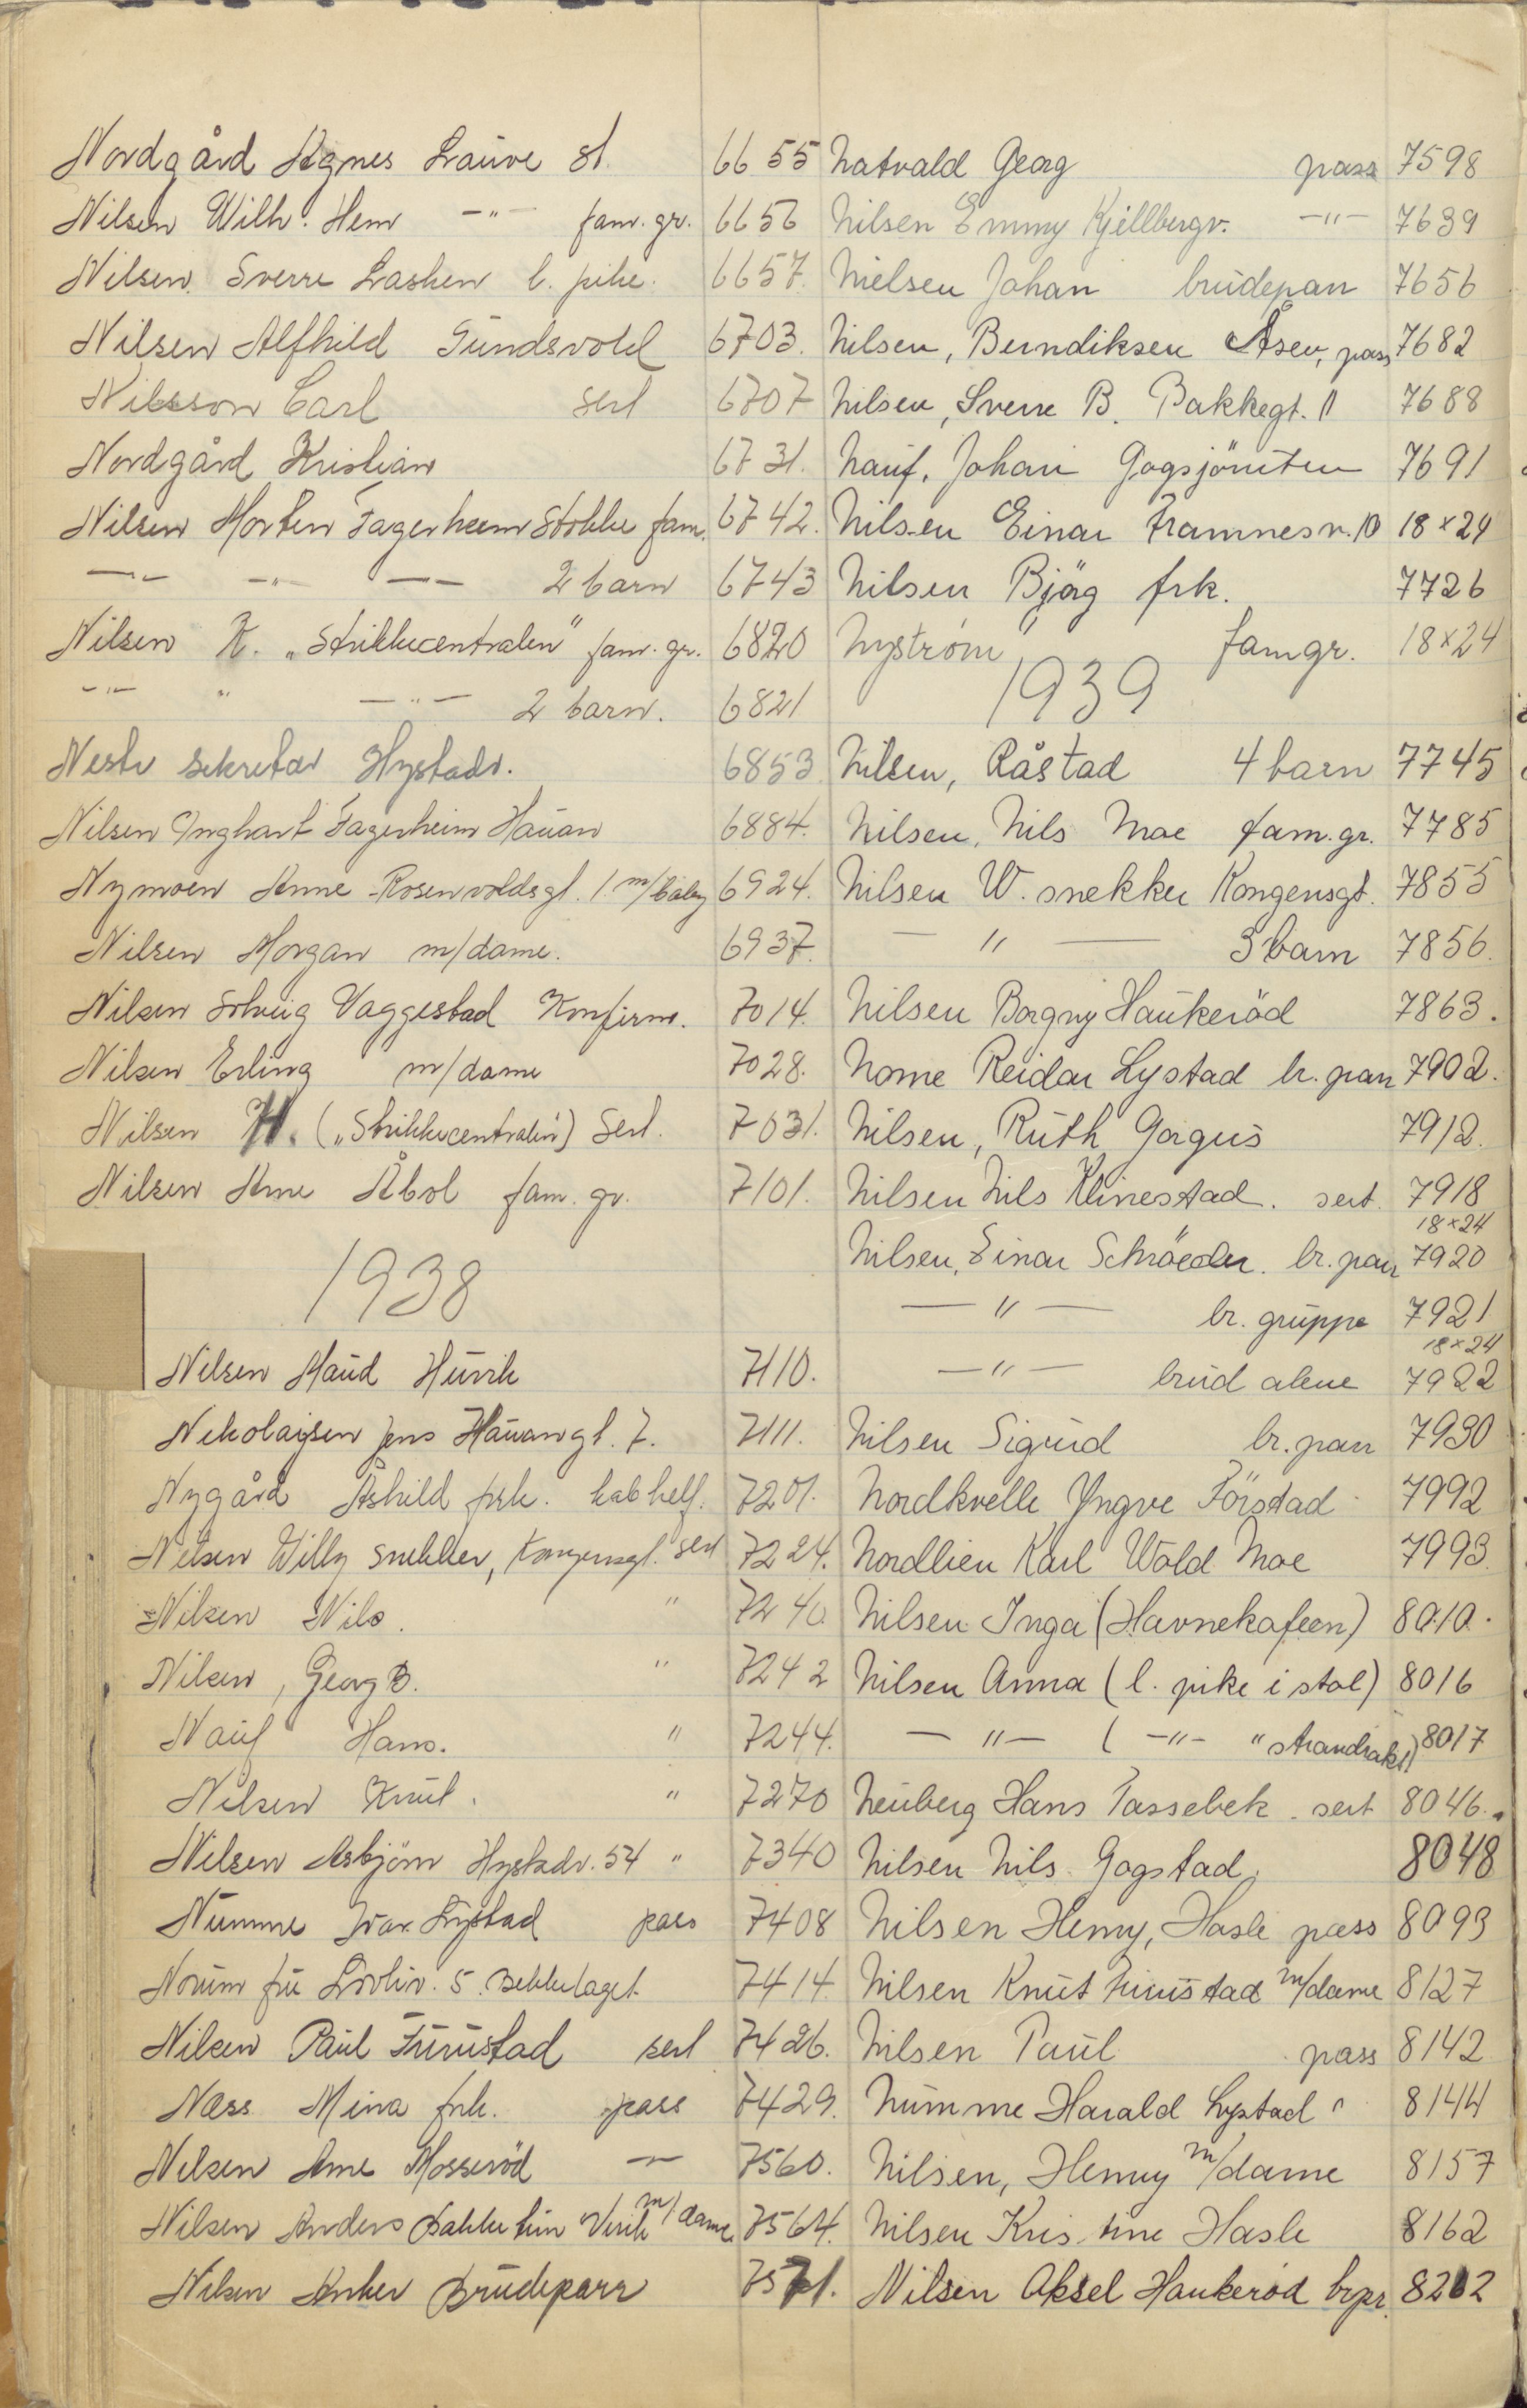 Nordgård Agnes Lauve st. 6655
Nilsen Wilh. Hem -"- fam. gr. 6656
Nilsen Sverre Lasken l. pike. 6657.
Nilsen Alfhild Sundsvold 6703.
Nilsson Carl sert 6707
Nordgård Kristian 6731.
Nilsen Morten Fagerheim Stokke fam. 6742.
-"- -"- -"- 2 barn 6743
Nilsen K. „Strikkecentralen" fam. gr. 6820
-"- " -"- 2 barn. 6821
Neste sekretær Hystadv. 6853
Nilsen Inghart Fagerheim Hauan 6884.
Nymoen Anne Rosenvoldsgt. 1. m/baby 6924.
Nilsen Morgan m/dame. 6937.
Nilsen Solveig Vaggestad Konfirm. 7014.
Nilsen Erling m/dame 7028.
Nilsen H. („Strikkecentralen") Sert. 7031.
Nilsen Arne Åbol fam. gr. 7101.
1938
Nilsen Maud Huvik 7110.
Nikolaisen Jens Hauangt. 7. 7111.
Nygård Åshild frk. kabhelf. 7201.
Nilsen Willy snekker, Kongensgt. sert 7224.
Nilsen Nils. " 7240
Nilsen, Georg B. " 7242
Nauf Hans. " 7244.
Nilsen Knut. " 7270
Nilsen Asbjörn Hystadv. 54 " 7340
Numme Ivar Lystad pass 7408
Norum fru Solliv. 5. Bekkelaget 7414.
Nilsen Paul Furustad sert 7426.
Næss Mina frk. pass 7429.
Nilsen Arne Mosseröd -"- 7560.
Nilsen Anders Bakketun Virik m/dame 7564.
Nilsen Anker Brudeparr 7571.
Natvald Georg pass 7598
Nilsen Emmy Kjellbergv. -"- 7639
Nielsen Johan brudepar 7656
Nilsen, Berndiksen Åsen, pass 7682
Nilsen, Sverre B. Bakkegt. 11 7688
Nauf, Johan Gogsjöruten 7691
Nilsen Einar Framnesv. 10 18×24
Nilsen Bjørg frk. 7726
Nyström famgr. 18×24
1939
Nilsen, Råstad 4 barn 7745
Nilsen, Nils Moe fam. gr. 7785
Nilsen W. snekker Kongensgt. 7855
-"- 3 barn 7856.
Nilsen Borgny Haukeröd 7863.
Nome Reidar Lystad br. par 7902.
Nilsen, Ruth Gorgus 7912.
Nilsen Nils Klinestad. sert. 7918
18×24
Nilsen, Einar Schröeder. br. par 7920
-"- br. gruppe 7921
18×24
-"- brud alene 7922
Nilsen Sigurd br. par 7930
Nordkvelle Yngve Förstad 7992
Nordlien Karl Wold Moe 7993
Nilsen Inga (Havnekafeen) 8010.
Nilsen Anna (l. pike i stol) 8016
-"- ( -"- " strandrakt) 8017
Neuberg Hans Tassebek. sert 8046.
Nilsen Nils Gogstad, 8048
Nilsen Henry, Hasle pass 8093
Nilsen Knut m/dame 8127
Nilsen Paul pass 8142
Numme Harald Lystad " 8144
Nilsen, Henry m/dame 8157
Nilsen Kristine Hasle 8162
Nilsen Aksel Haukeröd brpr. 8202